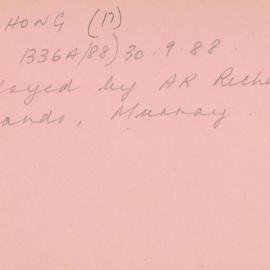 HONG (17)
1336A/88) 30.9.88.
loyed by AR Riche
ands, Murray